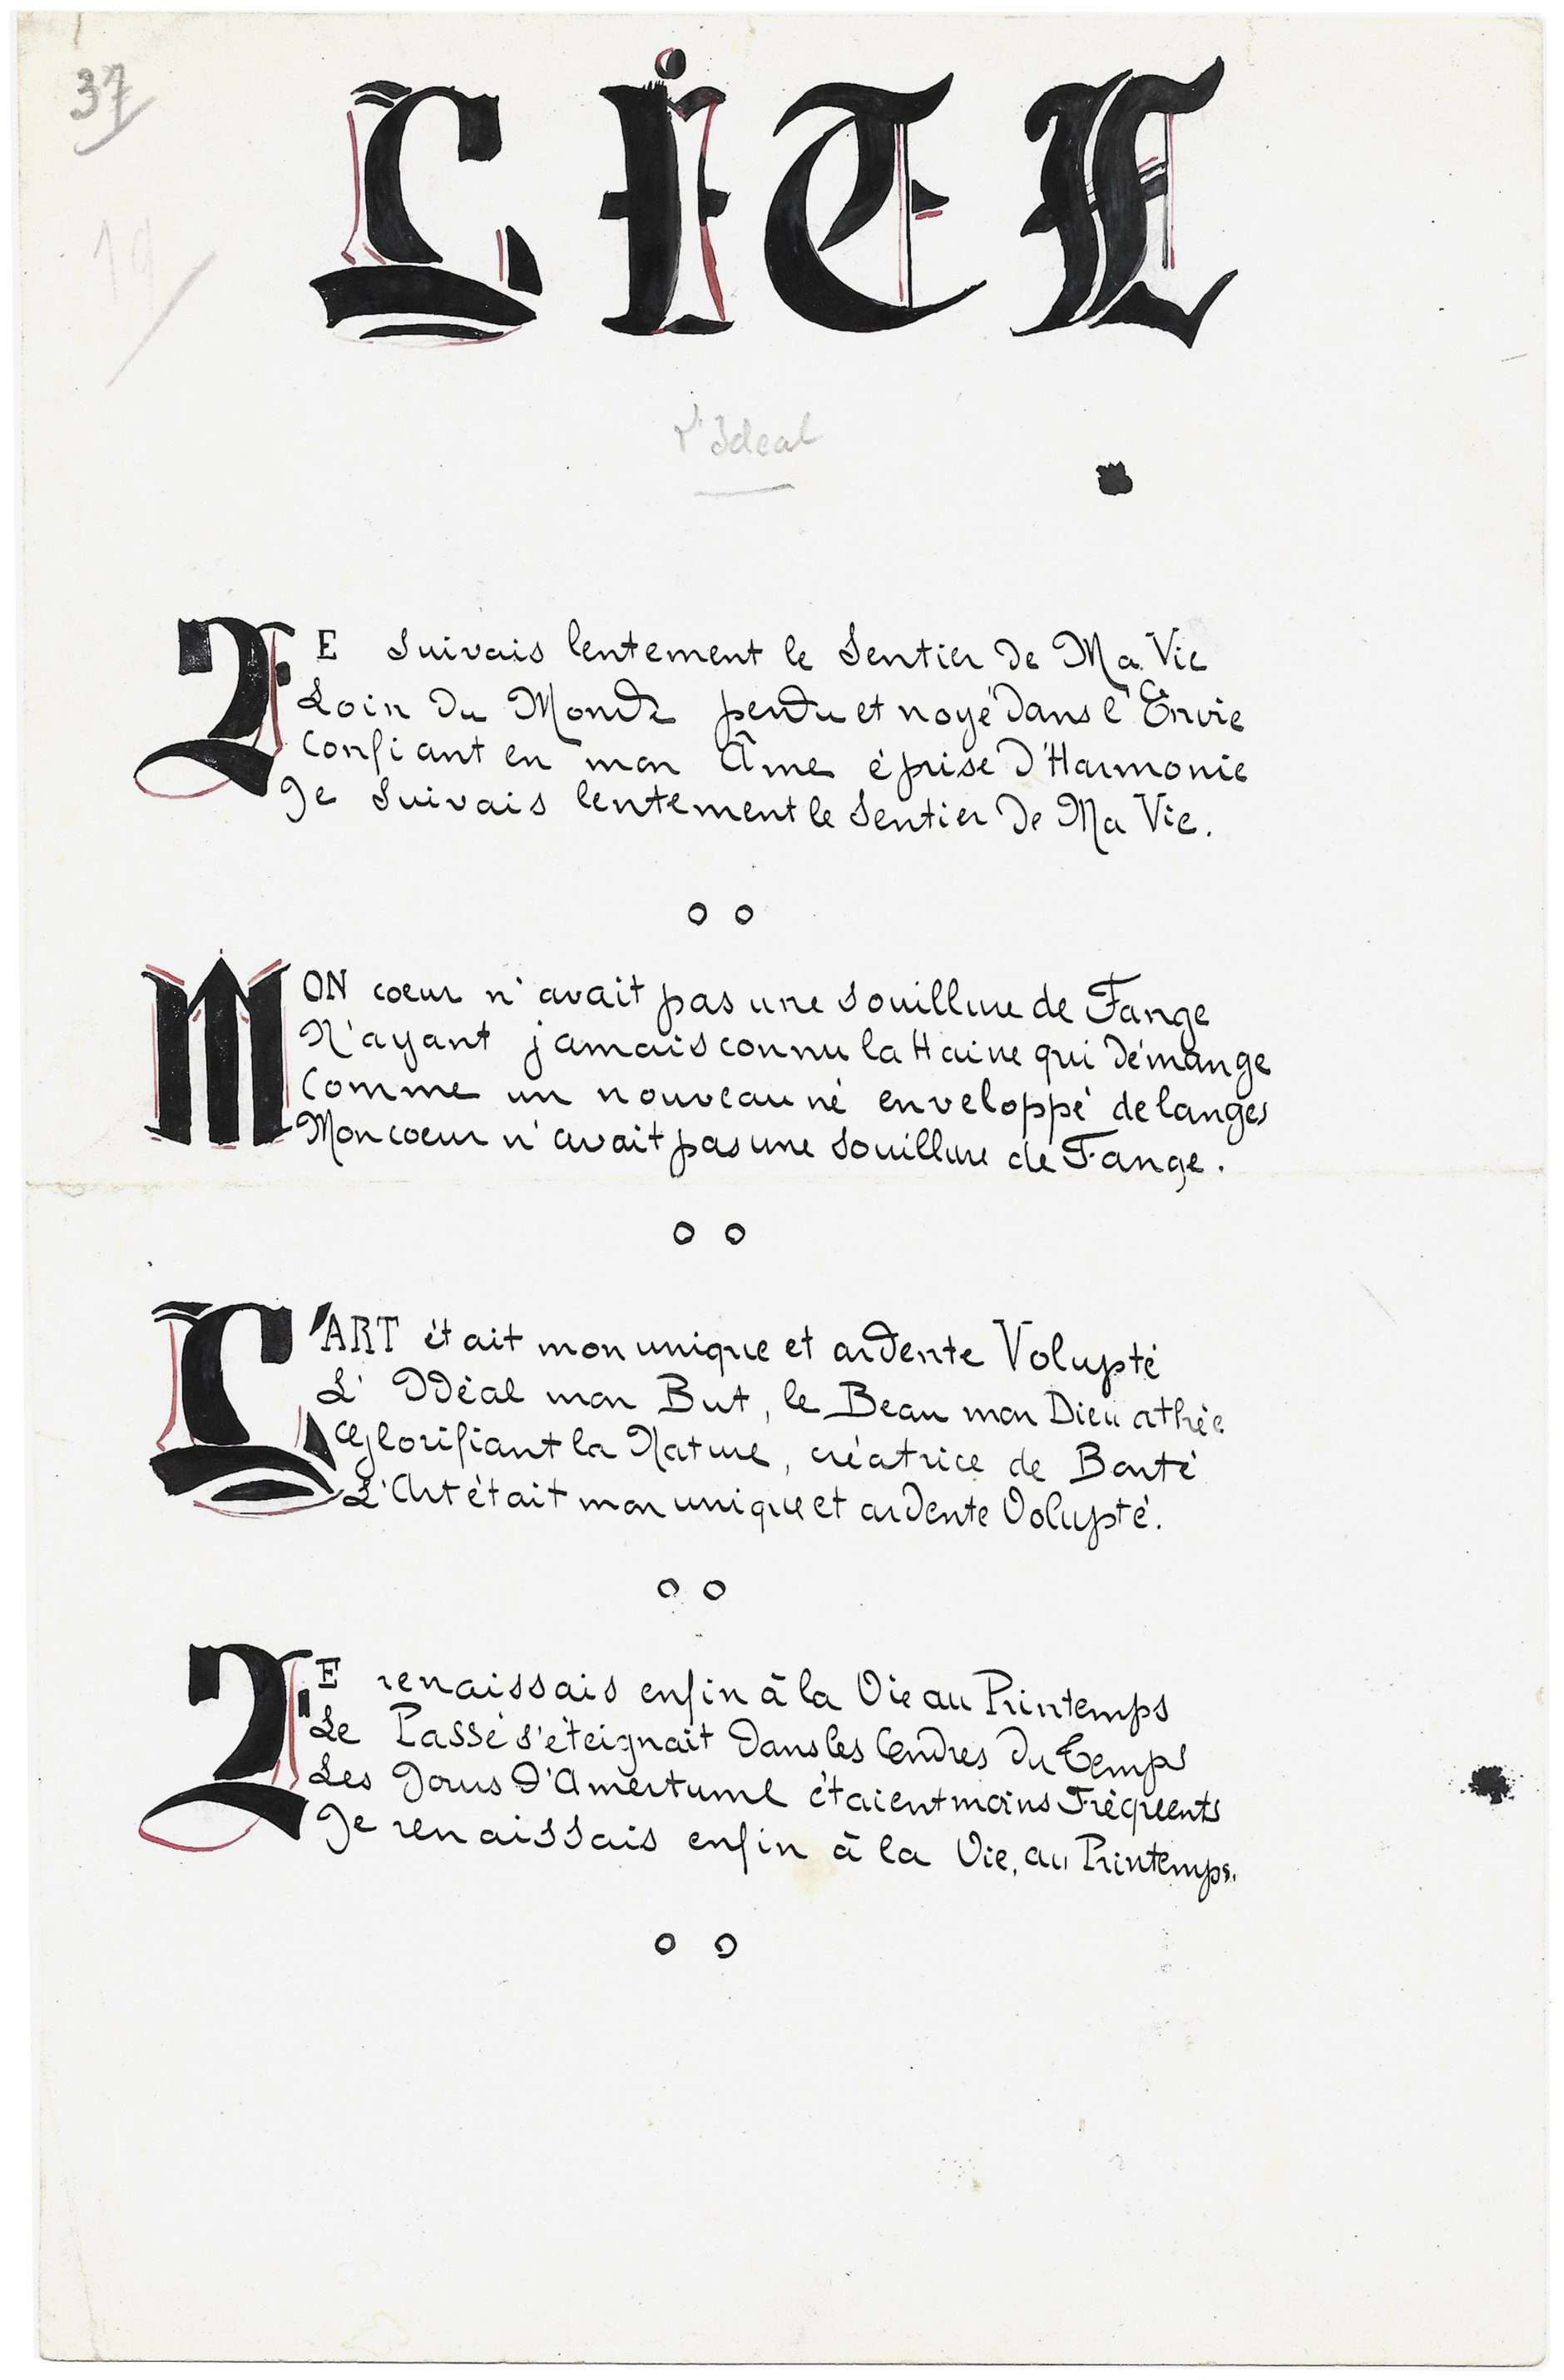 37
19
LITL
l'Ideal
JE Suivais lentement le Sentier de Ma Vie
Loin du Monde perdu et noyé dans l'Envie
Confiant en mon Âme éprise d'Harmonie
Je Suivais lentement le Sentier de Ma Vie.
MON coeur n'avait pas une Souillure de Fange
N'ayant jamais connu la Haine qui démange
Comme un nouveau né enveloppé de langes
Mon coeur n'avait pas une Souillure de Fange.
L'ART était mon unique et ardente Volupté
L'Idéal mon But, le Beau mon Dieu athée
Glorifiant la Nature, créatrice de Bonté
L'Art était mon unique et ardente Volupté.
JE renaissais enfin à la Vie au Printemps
Le Passé s'éteignait dans les Cendres du Temps
Les Jours d'Amertume étaient moins Fréquents
Je renaissais enfin à la Vie, au Printemps.